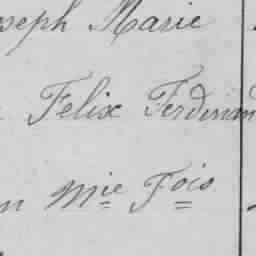 seph Marie
Felix Ferdinan
n Mie Fois